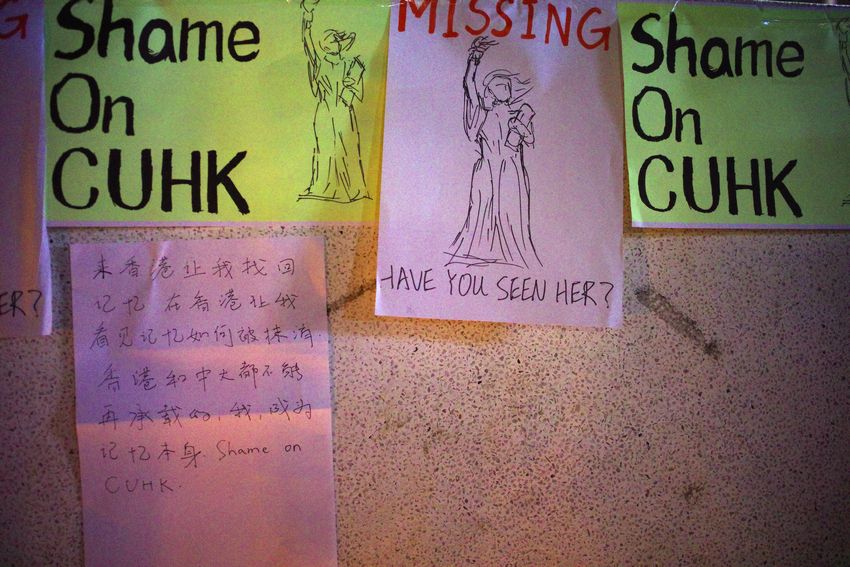 G
Shame
On
CUHK
MISSING
HAVE YOU SEEN HER?
Shame
On
CUHK
ER?
来香港让我找回
记忆 在香港让我
看见记忆如何被抹消.
香港和中大都不能
再承载的, 我, 成为
记忆本身. Shame on
CUHK.